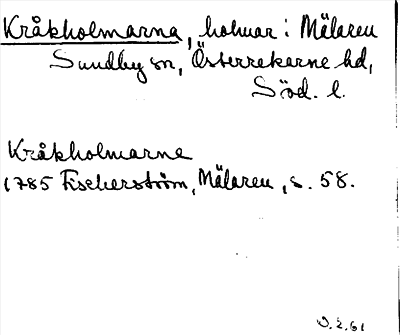 Kråkholmarna, holmar i Mälaren
Sundby sn, Österrekarne hd,
Söd. l.
Kråkholmarne
1785 Fischerström, Mälaren, s. 58.